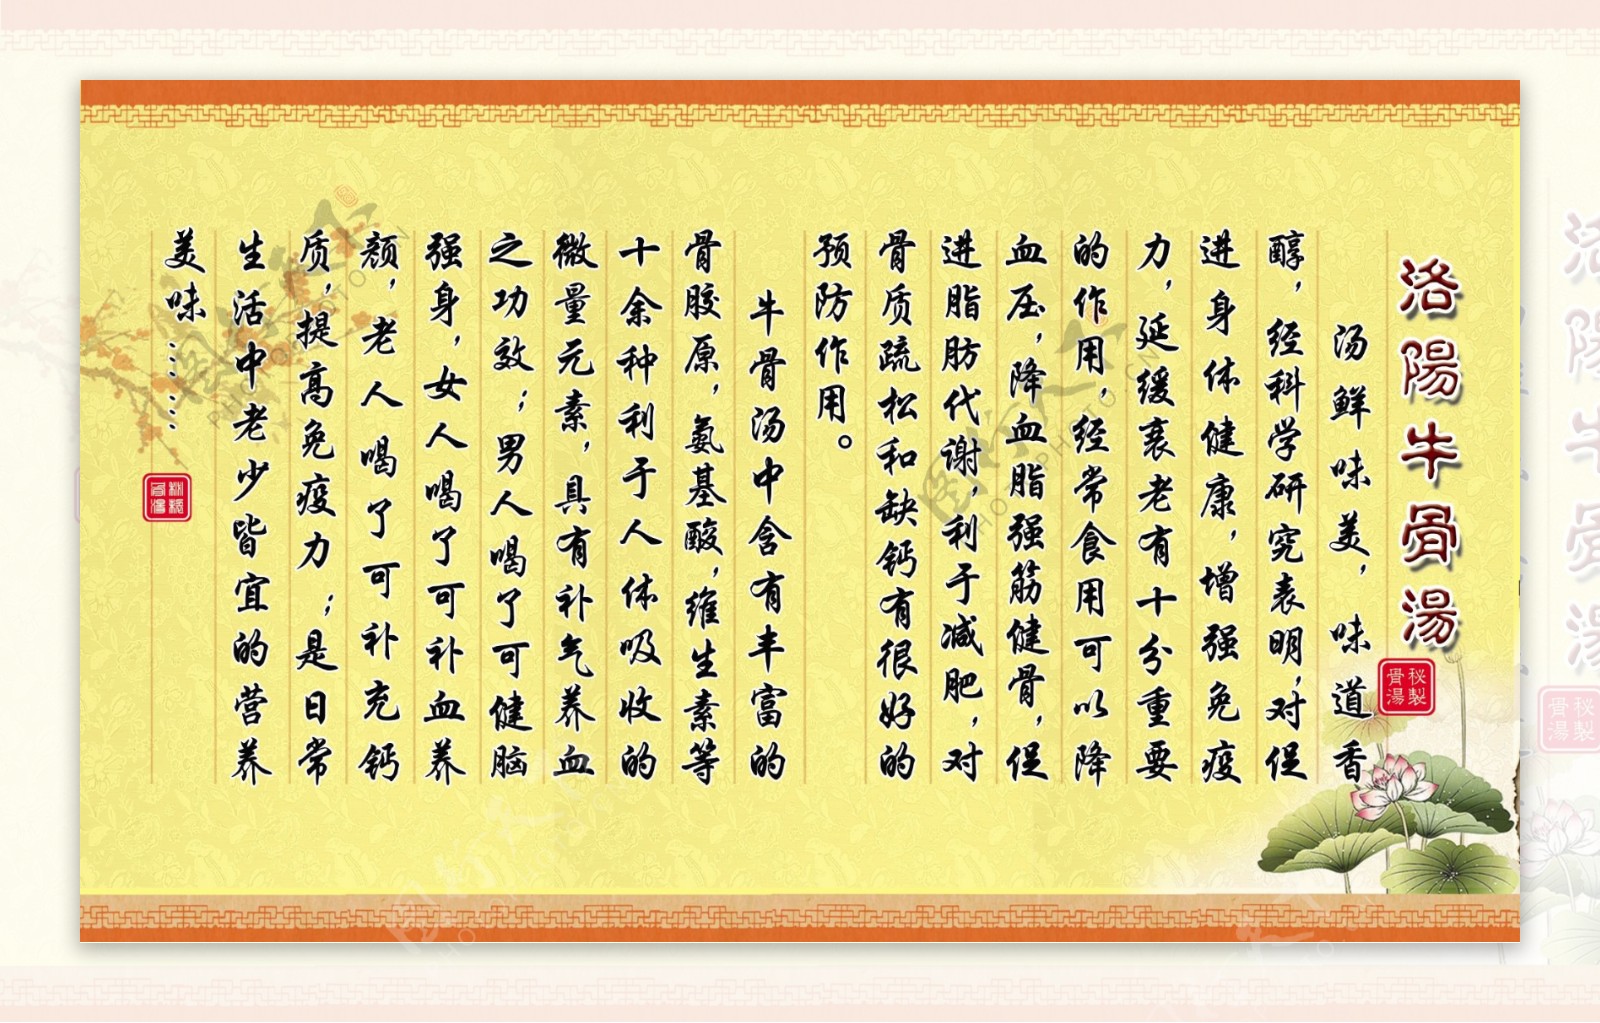 洛陽牛骨湯
秘製骨湯
汤鲜味美，味道香
醇，经科学研究表明，对促
进身体健康，增强免疫
力，延缓衰老有十分重要
的作用，经常食用可以降
血压，降血脂强筋健骨，促
进脂肪代谢，利于减肥，对
骨质疏松和缺钙有很好的
预防作用。
牛骨汤中含有丰富的
骨胶原，氨基酸，维生素等
十余种利于人体吸收的
微量元素，具有补气养血
之功效；男人喝了可健脑
强身，女人喝了可补血养
颜，老人喝了可补充钙
质，提高免疫力；是日常
生活中老少皆宜的营养
美味……